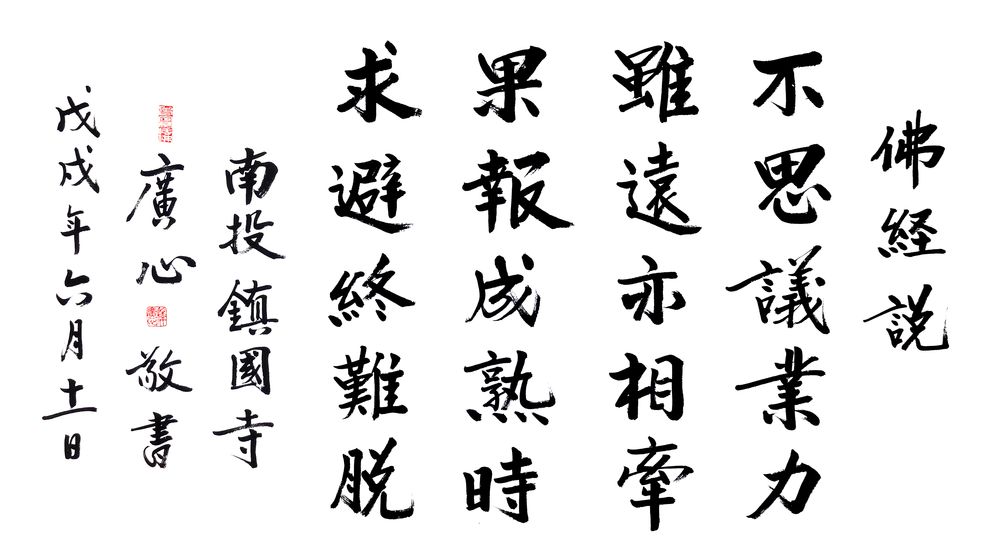 佛経説
不思議業力
雖遠亦相牽
果報成熟時
求避終難脱
南投鎮國寺
廣心敬書
戊戌年六月十一日